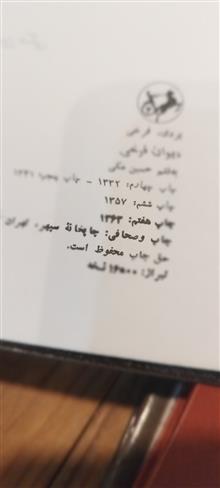 یزدی، فرخی
دیوان فرخی،
به‌قلم حسین مکی
چاپ چهارم: ۱۳۳۲ - چاپ پنجم: ۱۳۴۱
چاپ ششم: ۱۳۵۷
چاپ هفتم: ۱۳۶۳
چاپ وصحافی: چاپخانهٔ سپهر، تهران
حق چاپ محفوظ است.
تیراژ: ۱۶۵۰۰ نسخه